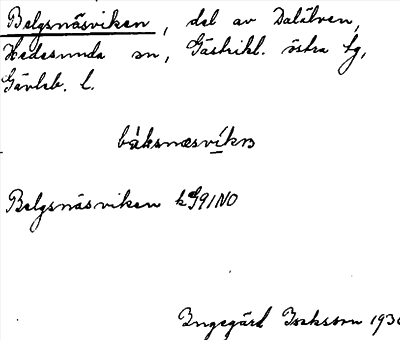 Belgsnäsviken, del av Dalälven,
Hedesunda sn, Gästrikl. östra tg,
Gävleb. l.
Belgsnäsviken k G91NO
Ingegärd Isaksson 193